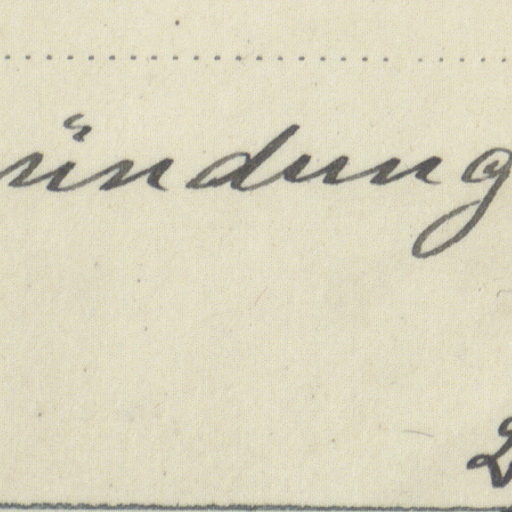 ründung